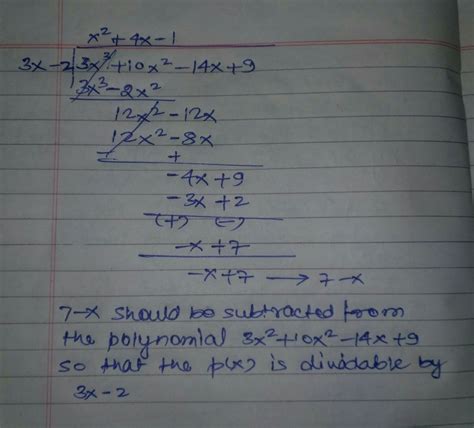 x² + 4x - 1
3x - 2 3x³ + 10x² - 14x + 9
3x³ - 2x²
12x² - 12x
12x² - 8x
- +
- 4x + 9
- 3x + 2
(+) (-)
- x + 7
- x + 7 → 7 - x
7-x should be subtracted from
the polynomial 3x²+10x²-14x+9
so that the p(x) is dividable by
3x - 2